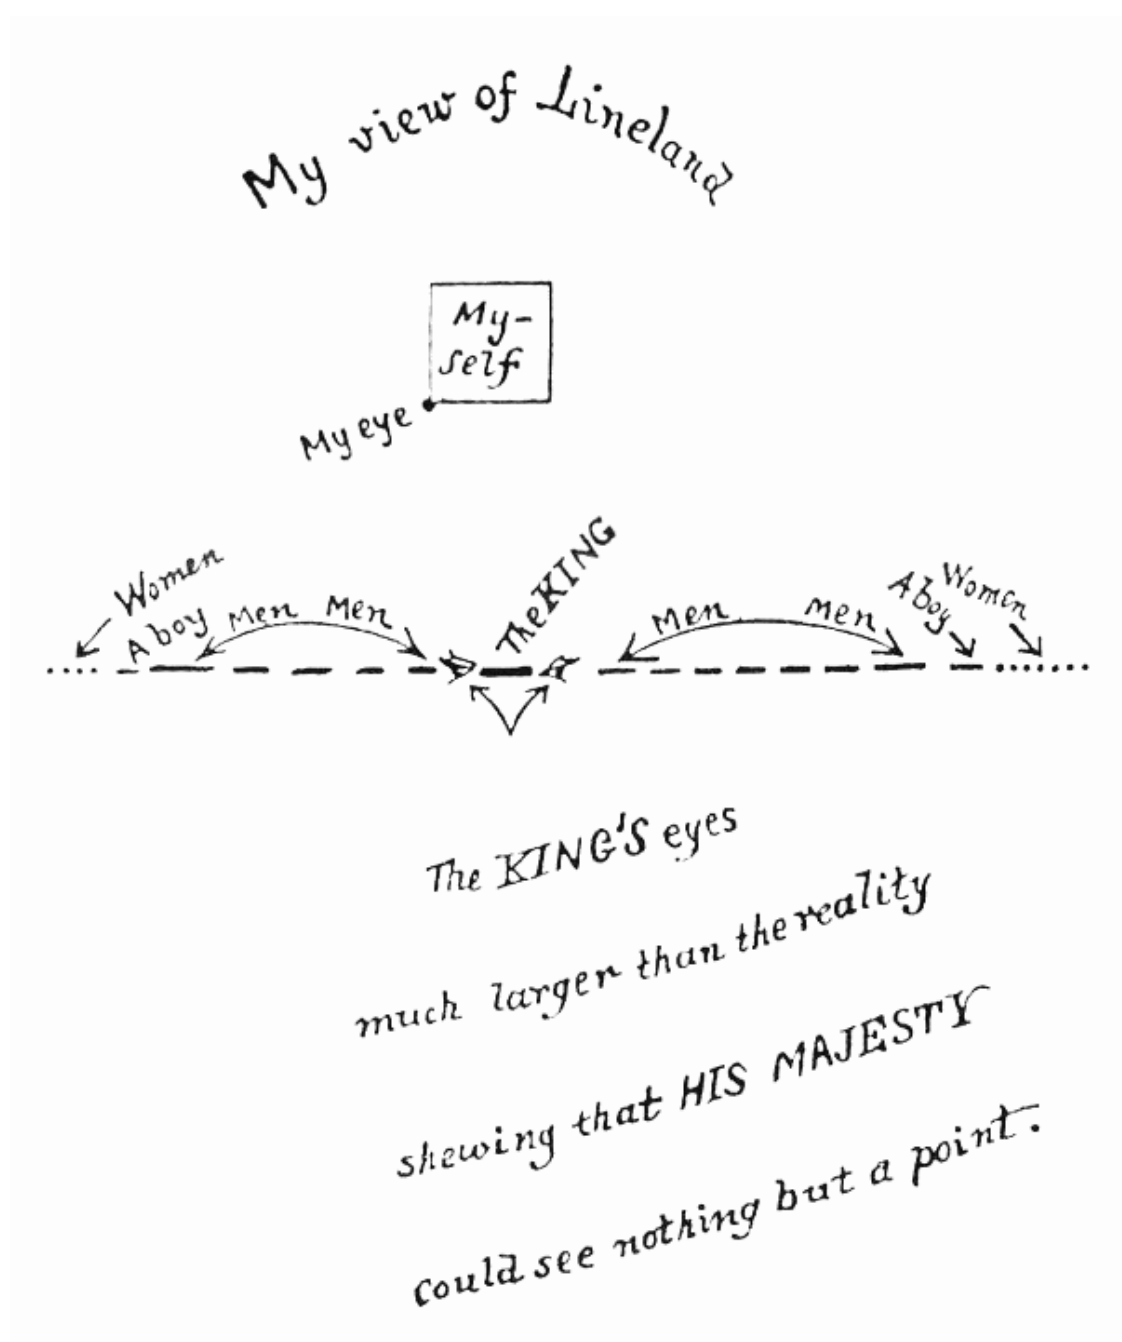 My view of Lineland
My-
self
My eye
The KING
Women
A boy
Men Men
Men Men
A boy
Women
The KING'S eyes
much larger than the reality
shewing that HIS MAJESTY
could see nothing but a point.